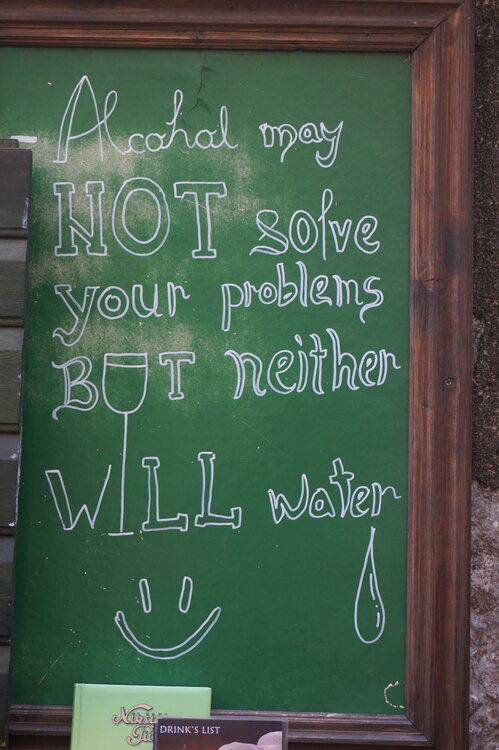 Alcohal may
NOT solve
your problems
BUT neither
WILL water
DRINK'S LIST